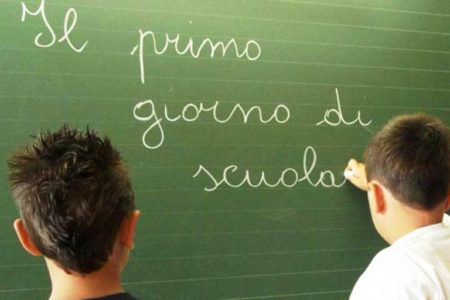 Il primo
giorno di
scuola